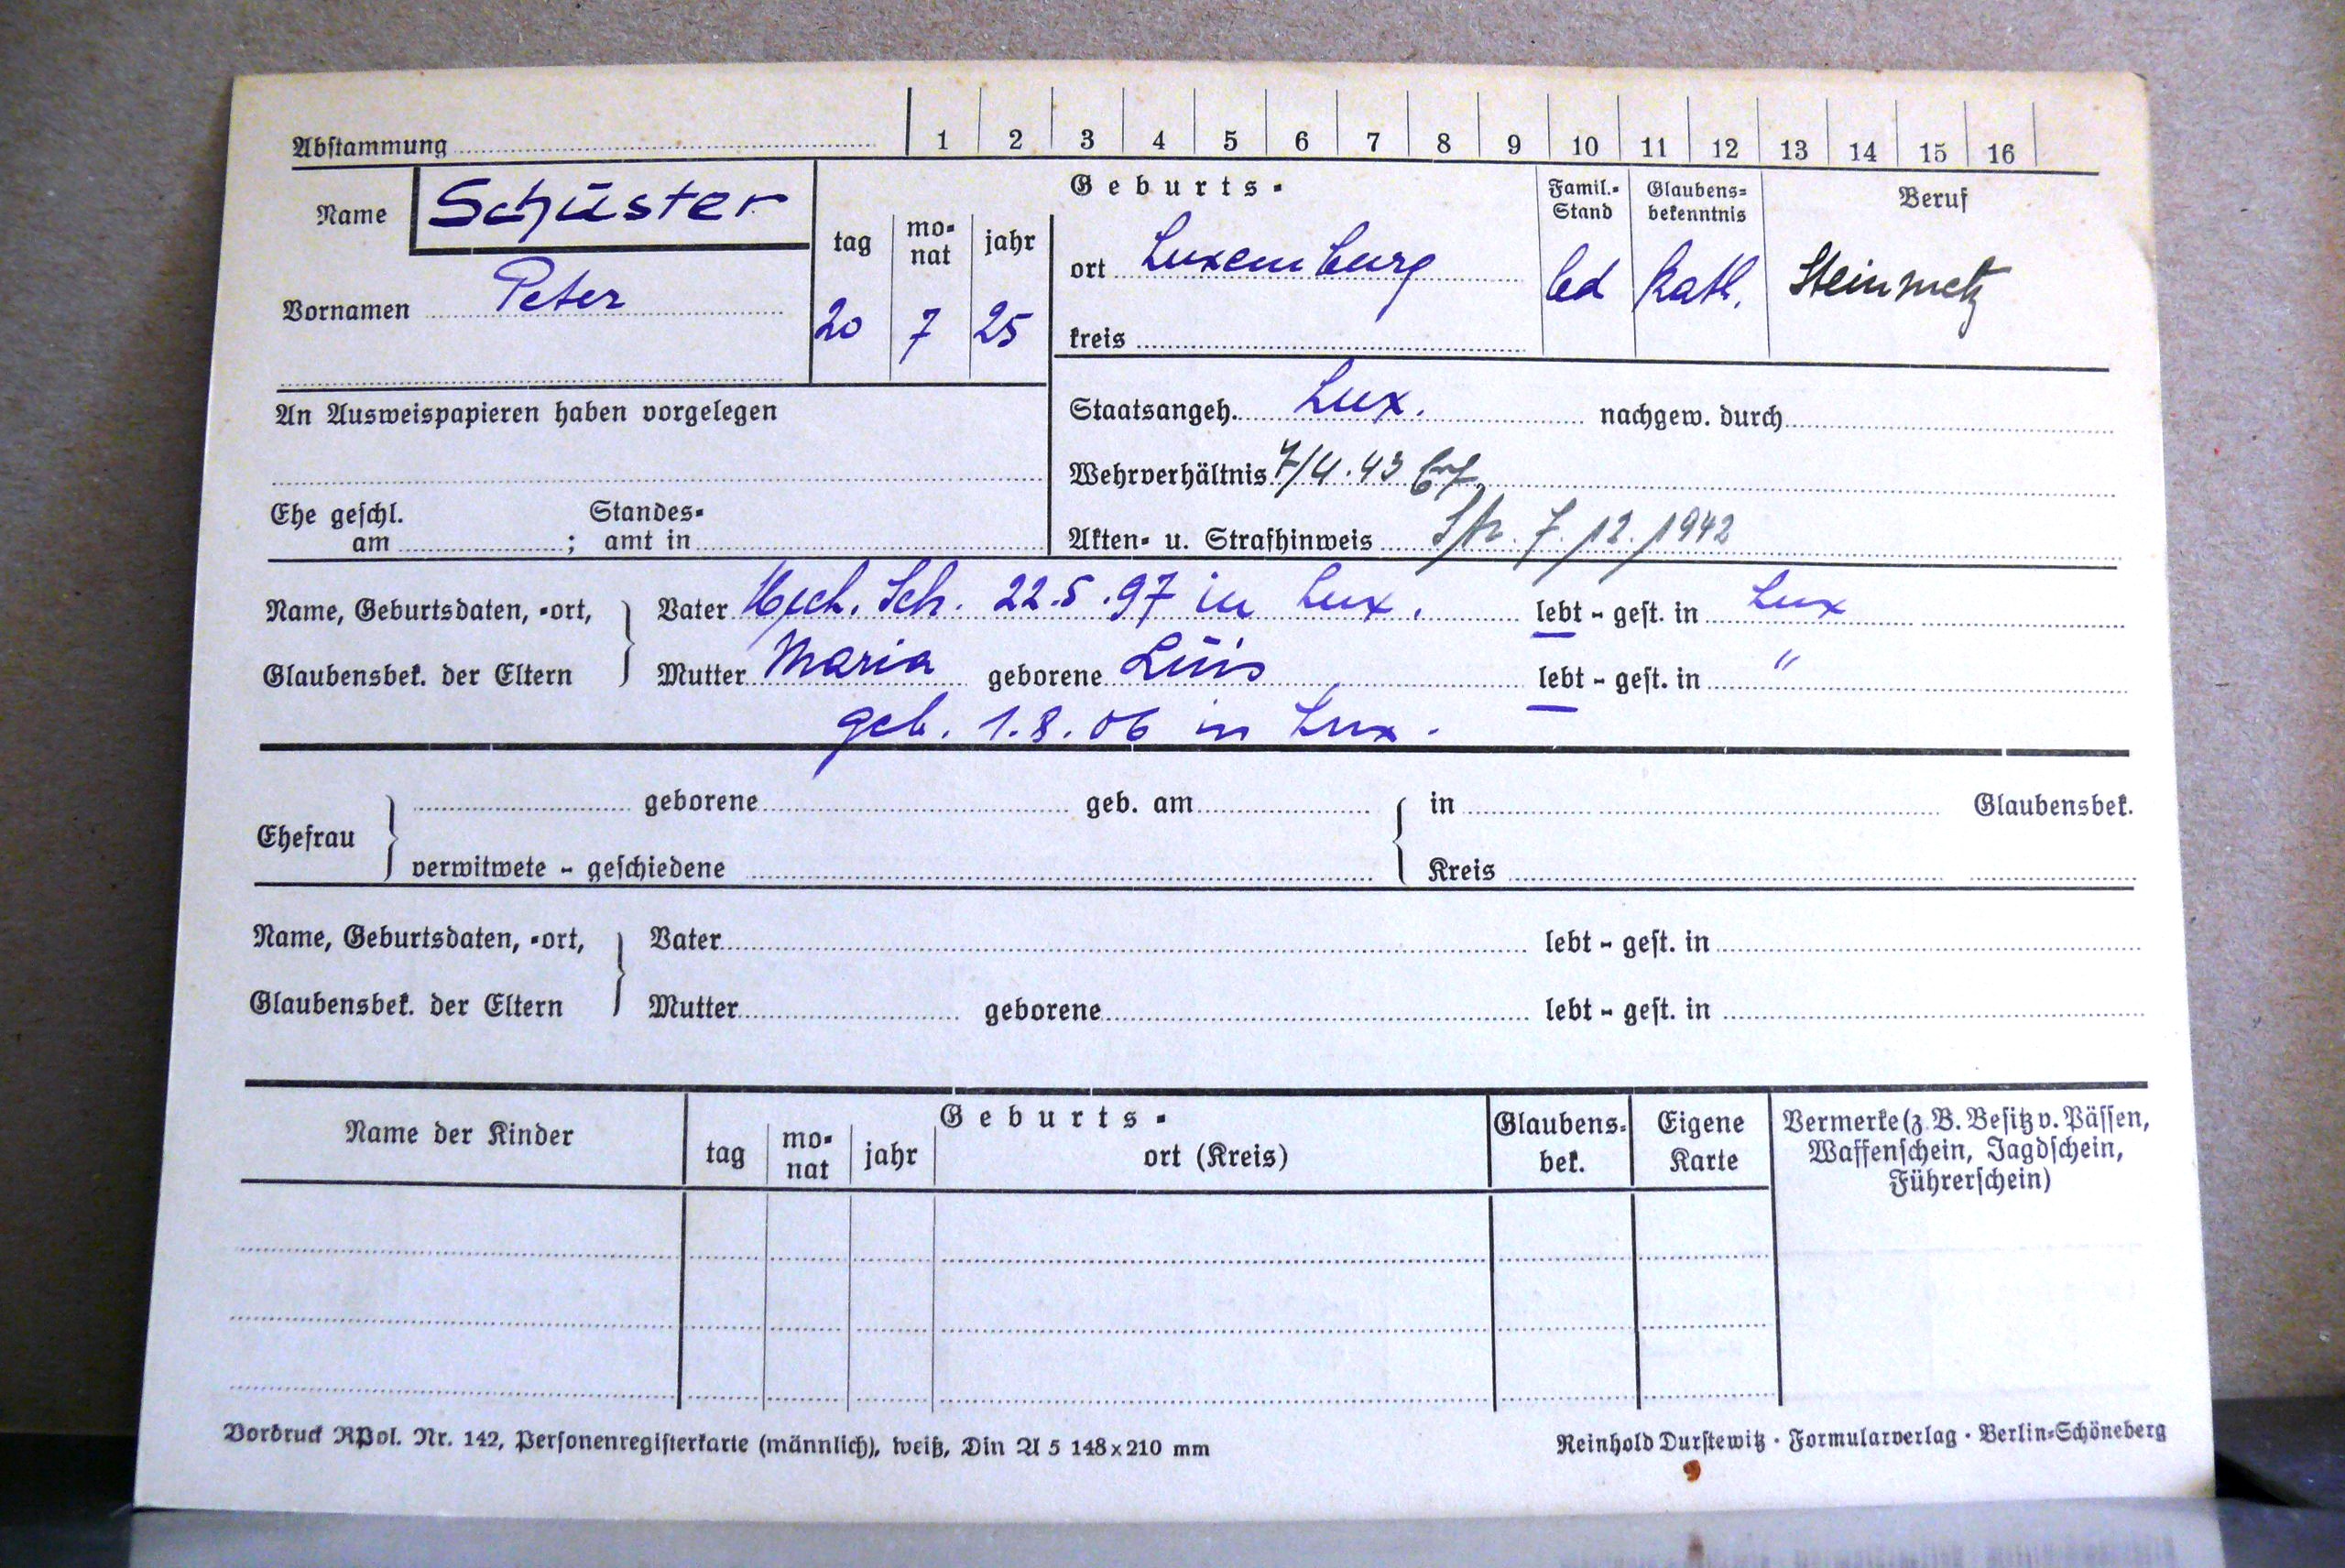 Abstammung 1 2 3 4 5 6 7 8 9 10 11 12 13 14 15 16
Name Schuster
Vornamen Peter
Geburts-
tag monat jahr
20 7 25
ort Luxemburg
kreis
Famil.-Stand
led
Glaubensbekenntnis
kath.
Beruf
Steinmetz
An Ausweispapieren haben vorgelegen
Ehe geschl. am ; Standesamt in
Staatsangeh. Lux. nachgew. durch
Wehrverhältnis 43
Akten- u. Strafhinweis 7./12./1942
Name, Geburtsdaten, -ort,
Glaubensbek. der Eltern
Vater Sch. 22.5.97 in Lux. lebt - gest. in Lux
Mutter Maria geborene Luis lebt - gest. in "
geb. 1.8.06 in Lux.
Ehefrau
geborene geb. am in Glaubensbek.
verwitwete - geschiedene Kreis
Name, Geburtsdaten, -ort,
Glaubensbek. der Eltern
Vater lebt - gest. in
Mutter geborene lebt - gest. in
Name der Kinder
Geburts-
tag monat jahr ort (Kreis)
Glaubens-
bek.
Eigene
Karte
Vermerke (z. B. Besitz v. Pässen,
Waffenschein, Jagdschein,
Führerschein)
Vordruck RPol. Nr. 142, Personenregisterkarte (männlich), weiß, Din A 5 148x210 mm
Reinhold Durstewitz · Formularverlag · Berlin-Schöneberg